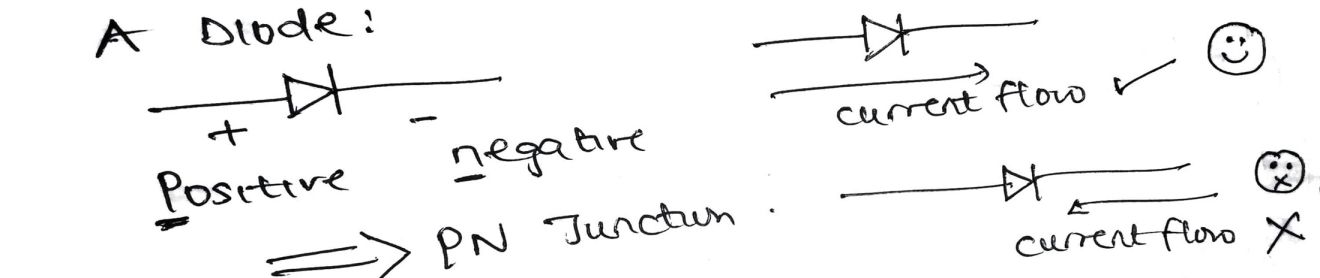 A Diode:
+ -
Positive negative
⇒ PN Junctun.
current flow ✓
current flow ✗